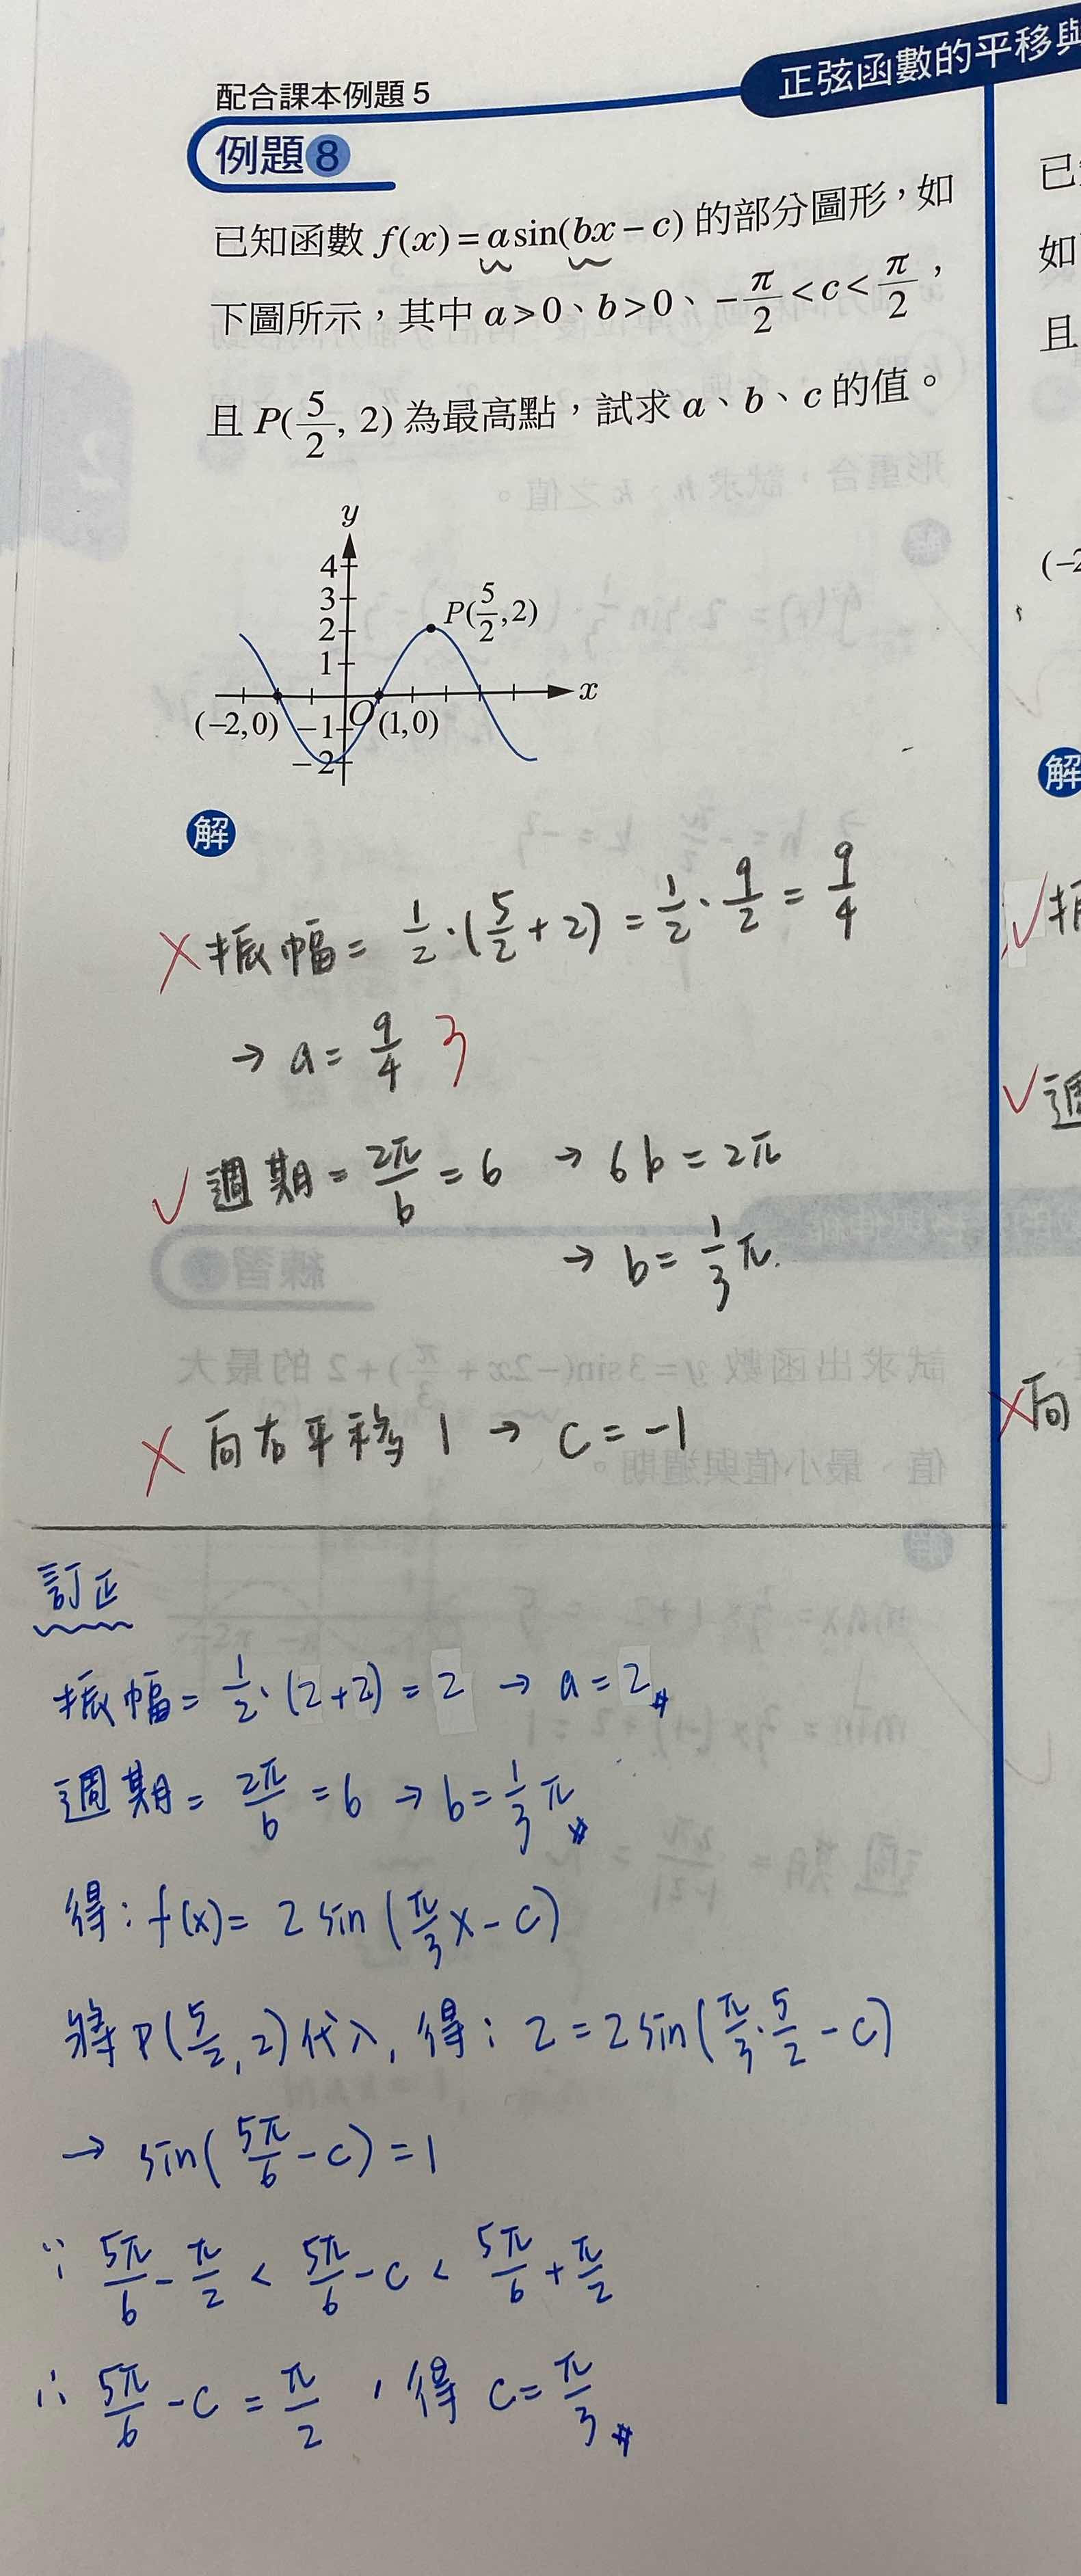 正弦函數的平移與
配合課本例題 5
例題 8
已知函數 f(x) = a sin(bx − c) 的部分圖形，如
下圖所示，其中 a > 0、b > 0、−π/2 < c < π/2，
且 P(5/2, 2) 為最高點，試求 a、b、c 的值。
y
4
3
2
1
P(5/2, 2)
x
(−2, 0)
−1
O
(1, 0)
−2
解
✗ 振幅 = 1/2·(5/2 + 2) = 1/2·9/2 = 9/4
→ a = 9/4 3
✓ 週期 = 2π/b = 6 → 6b = 2π
→ b = 1/3 π.
✗ 向右平移 1 → c = −1
訂正
振幅 = 1/2·(2+2) = 2 → a = 2 #
週期 = 2π/b = 6 → b = 1/3 π #
得：f(x) = 2 sin(π/3 x − c)
將 P(5/2, 2) 代入，得：2 = 2 sin(π/3·5/2 − c)
→ sin(5π/6 − c) = 1
∵ 5π/6 − π/2 < 5π/6 − c < 5π/6 + π/2
∴ 5π/6 − c = π/2，得 c = π/3 #
已
如
且
(−2
解
✓
✓ 週
✗ 向